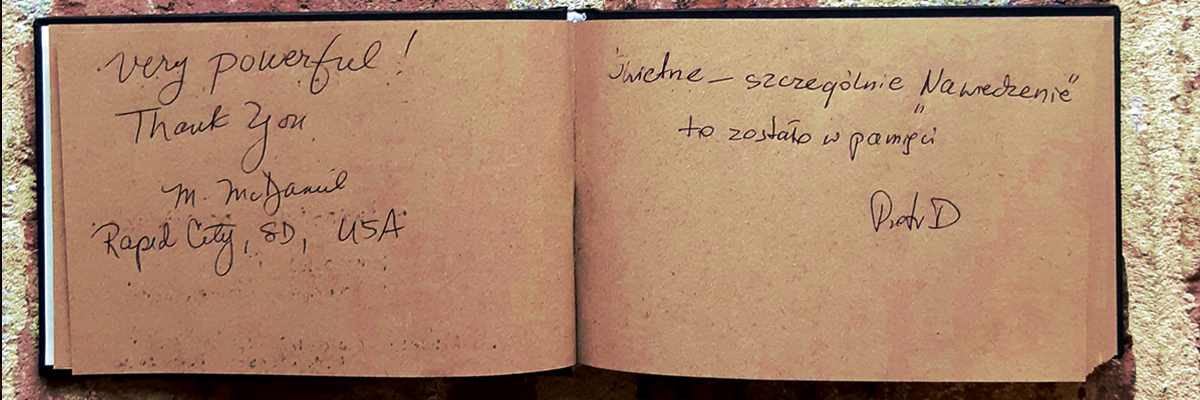 Very powerful!
Thank You
M. McDaniel
Rapid City, SD, USA
świetne – szczególnie „Nawiedzenie”
to zostało w pamięci
Piotr D